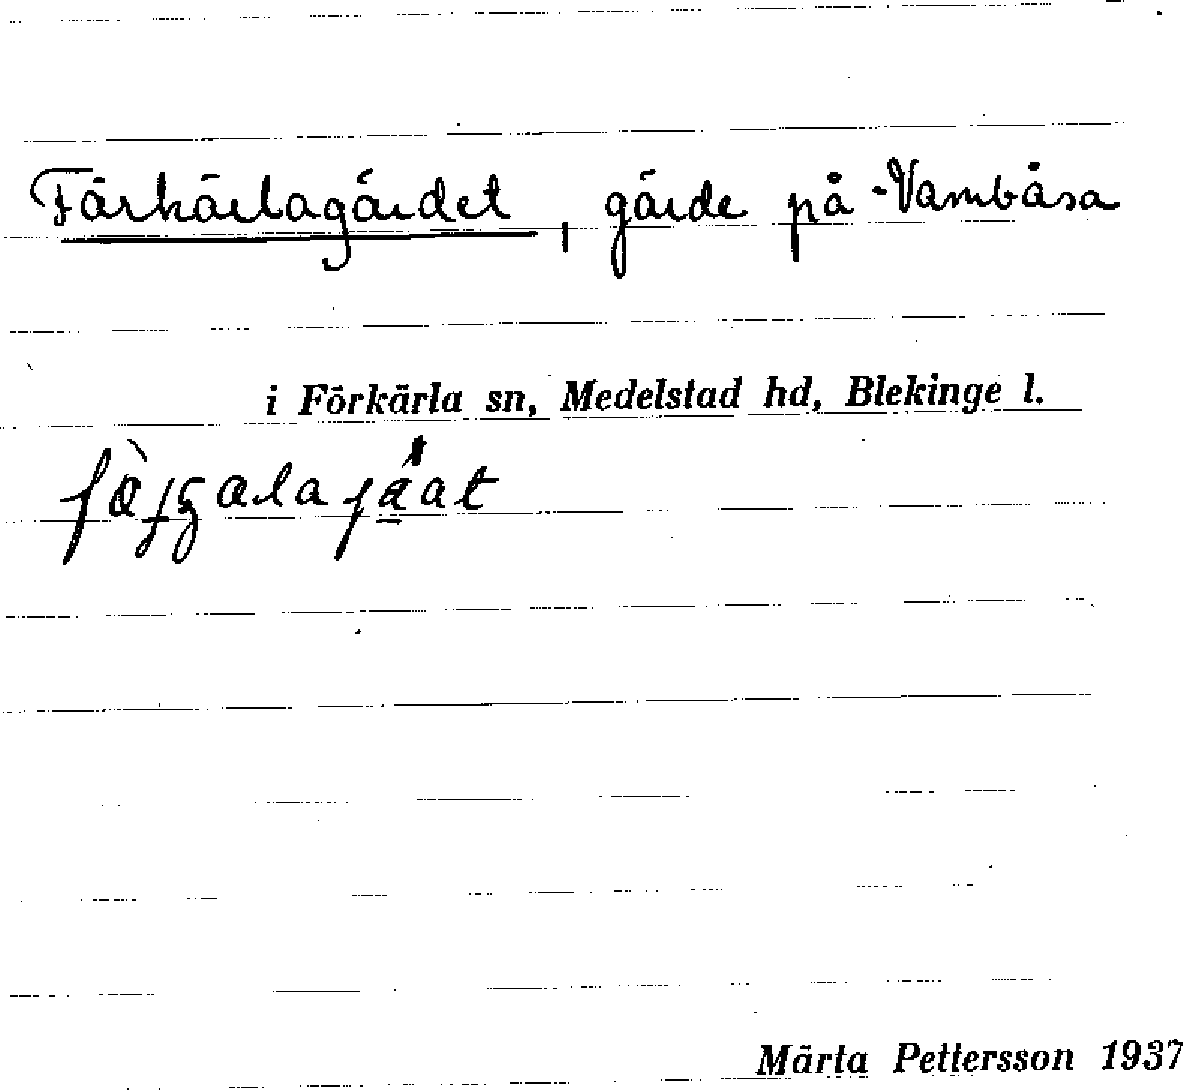 Färkärlagärdet, gärde på Vambåsa
i Förkärla sn, Medelstad hd, Blekinge l.
Märta Pettersson 1937